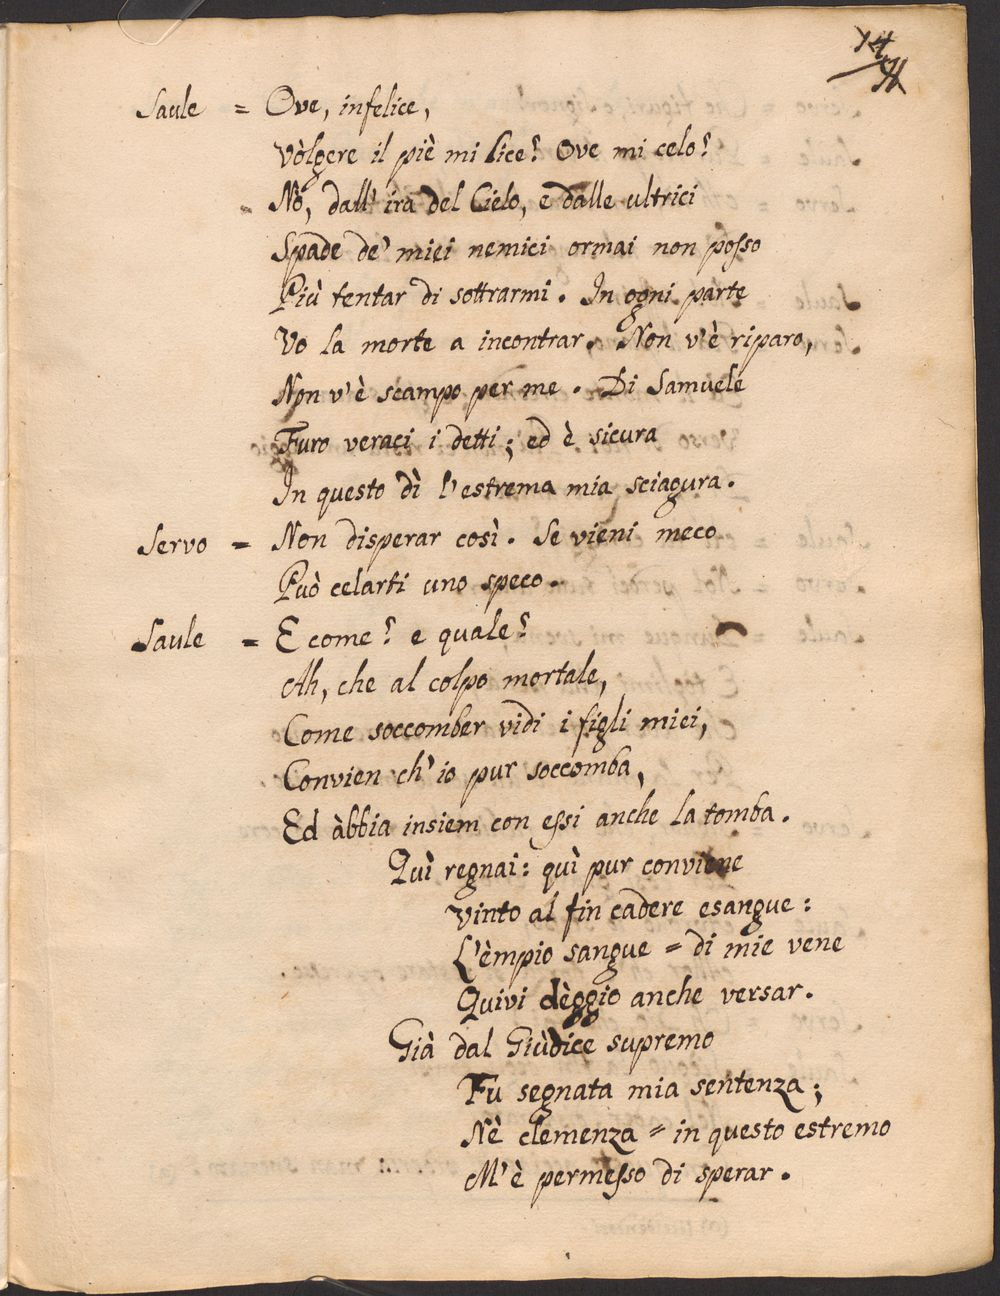 Saule = Ove, infelice,
Vòlgere il piè mi lice? Ove mi celo?
Nò, dall' ira del Cielo, e dalle ultrici
Spade de' miei nemici ormai non posso
Più tentar di sottrarmi. In ogni parte
Vo la morte a incontrar. Non v'è riparo,
Non v'è scampo per me. Di Samuele
Furo veraci i detti; ed è sicura
In questo dì l'estrema mia sciagura.
Servo = Non disperar così. Se vieni meco
Può celarti uno speco.
Saule = E come? e quale?
Ah, che al colpo mortale,
Come soccomber vidi i figli miei,
Convien ch' io pur soccomba,
Ed àbbia insiem con essi anche la tomba.
Quì regnai: quì pur conviene
Vinto al fin cadere esangue:
L'èmpio sangue = di mie vene
Quivi dèggio anche versar.
Già dal Giùdice supremo
Fu segnata mia sentenza;
Nè clemenza = in questo estremo
M'è permesso di sperar.